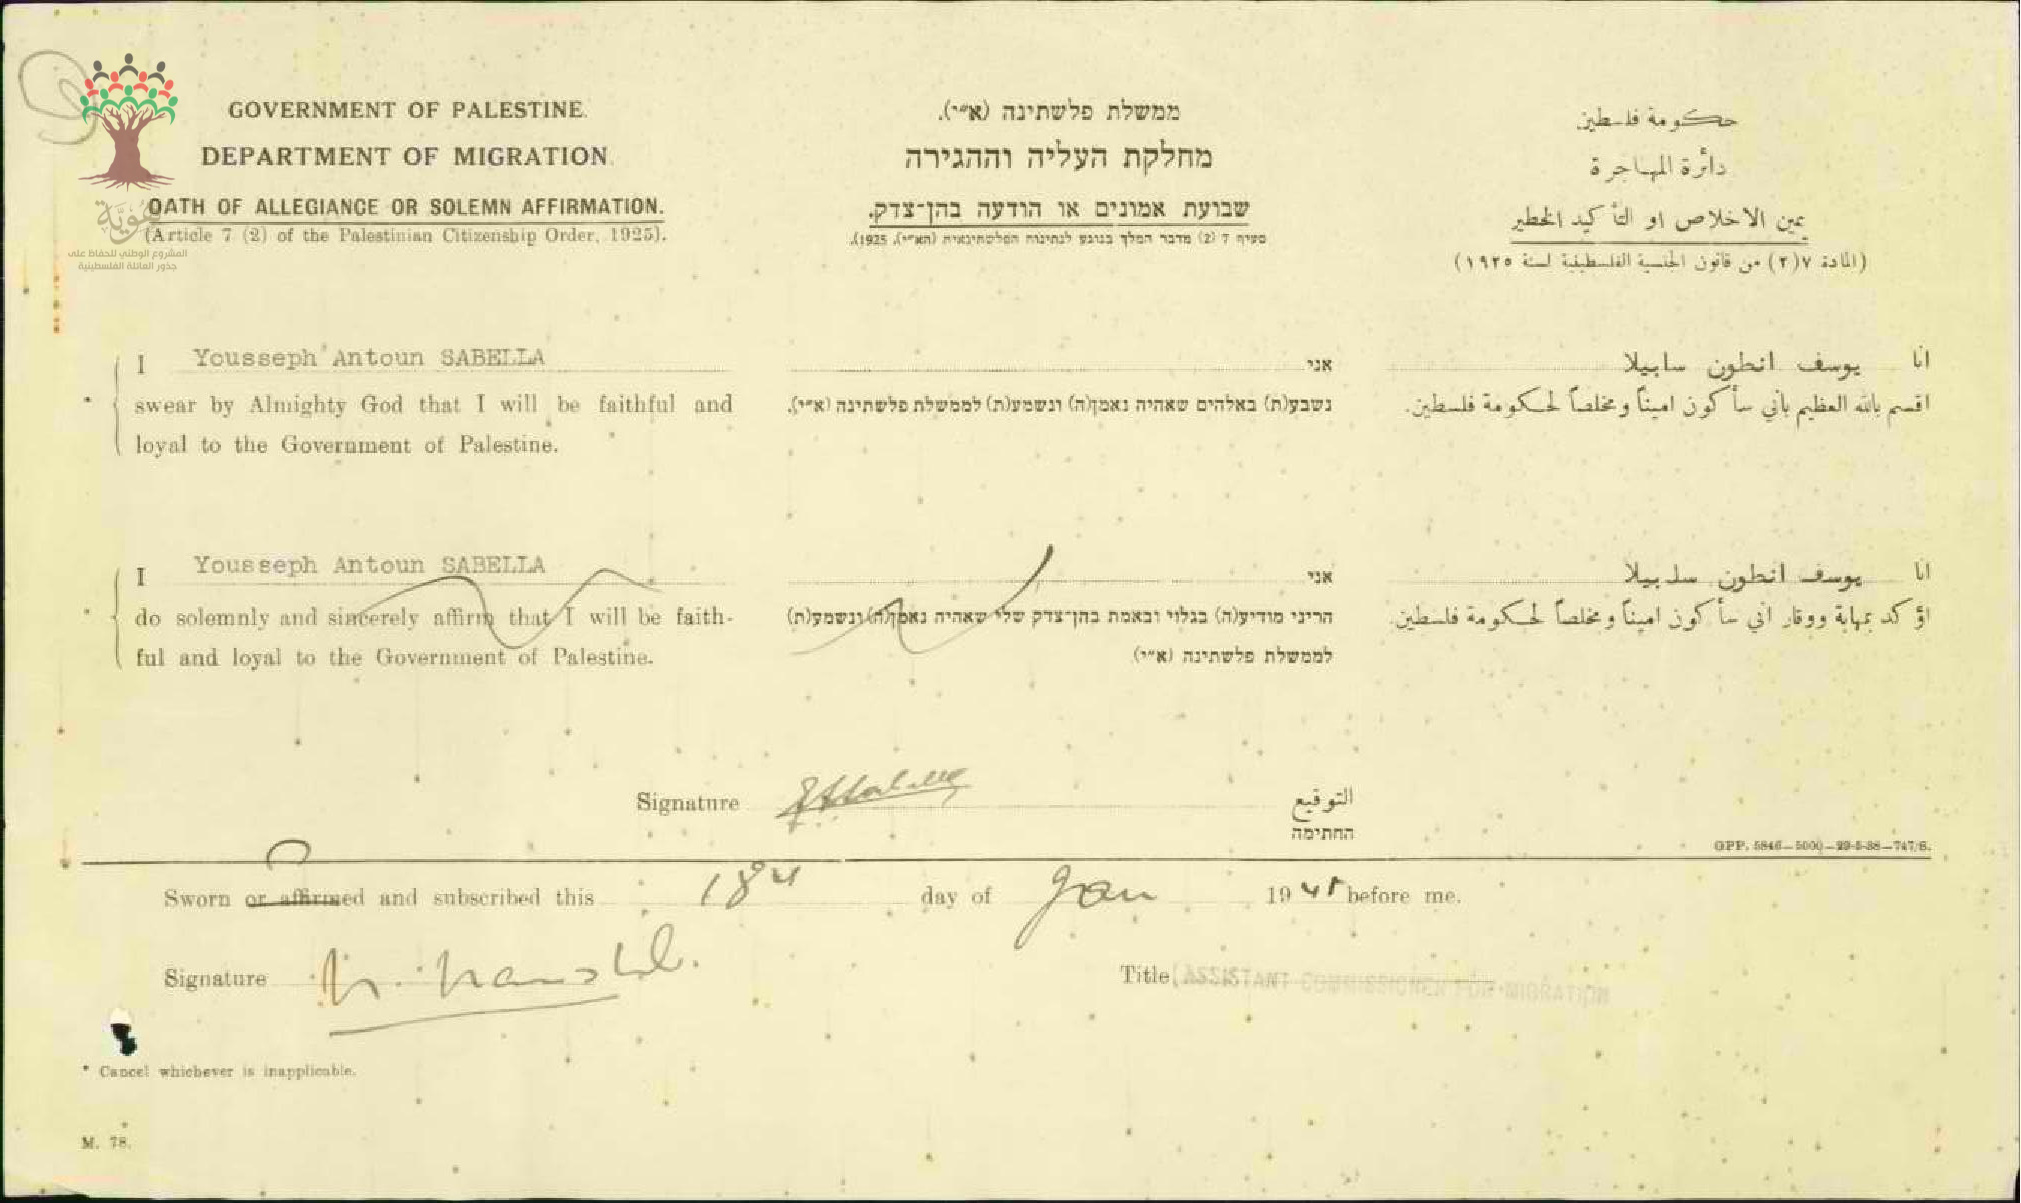 GOVERNMENT OF PALESTINE.
DEPARTMENT OF MIGRATION.
OATH OF ALLEGIANCE OR SOLEMN AFFIRMATION.
(Article 7 (2) of the Palestinian Citizenship Order, 1925).
ממשלת פלשתינה (א״י).
מחלקת העליה וההגירה
שבועת אמונים או הודעה בהן־צדק.
סעיף 7 (2) מדבר המלך בנוגע לנתינות הפלשתינאית (הא״י), 1925).
حكومة فلسطين
دائرة المهاجرة
يمين الاخلاص او التأكيد الخطير
(المادة ٧(٢) من قانون الجنسية الفلسطينية لسنة ١٩٢٥)
هوية
المشروع الوطني للحفاظ على
جذور العائلة الفلسطينية
I Yousseph Antoun SABELLA
* swear by Almighty God that I will be faithful and
loyal to the Government of Palestine.
אני
נשבע(ת) באלהים שאהיה נאמן(ה) ונשמע(ת) לממשלת פלשתינה (א״י).
انا يوسف انطون سابيلا
اقسم بالله العظيم بأني سأكون اميناً ومخلصاً لحكومة فلسطين.
I Yousseph Antoun SABELLA
* do solemnly and sincerely affirm that I will be faith-
ful and loyal to the Government of Palestine.
אני
הריני מודיע(ה) בגלוי ובאמת בהן־צדק שלי שאהיה נאמן(ה) ונשמע(ת)
לממשלת פלשתינה (א״י)
انا يوسف انطون سابيلا
اؤكد بمهابة ووقار اني سأكون اميناً ومخلصاً لحكومة فلسطين.
Signature التوقيع
החתימה
GPP. 5846—5000—29-5-38—747/S.
Sworn or affirmed and subscribed this 18 day of Jan 19 before me.
Signature
Title ASSISTANT COMMISSIONER FOR MIGRATION
* Cancel whichever is inapplicable.
M. 78.